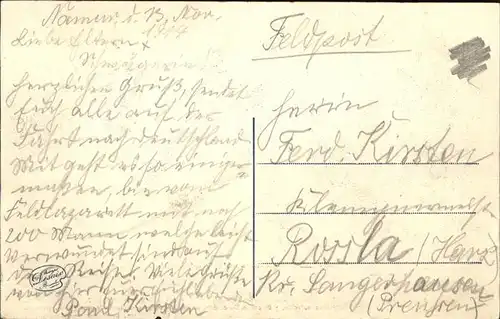 Namur, d. 13. Nov.
1914
Liebe Eltern u
herzlichen Gruß, sendet
Euch alle auf der
Fahrt nach Deutschland
Mir geht es so einiger
maßen, bin vom
Feldlazarett mit noch
200 Mann welche leicht
Verwundet sind auf
der Reise. Viele Grüße
von
Paul Kirsten
Feldpost
Herrn
Ferd. Kirsten
Klempnermeist
Rossla / Harz
Kr. Sangerhausen
(Preußen)